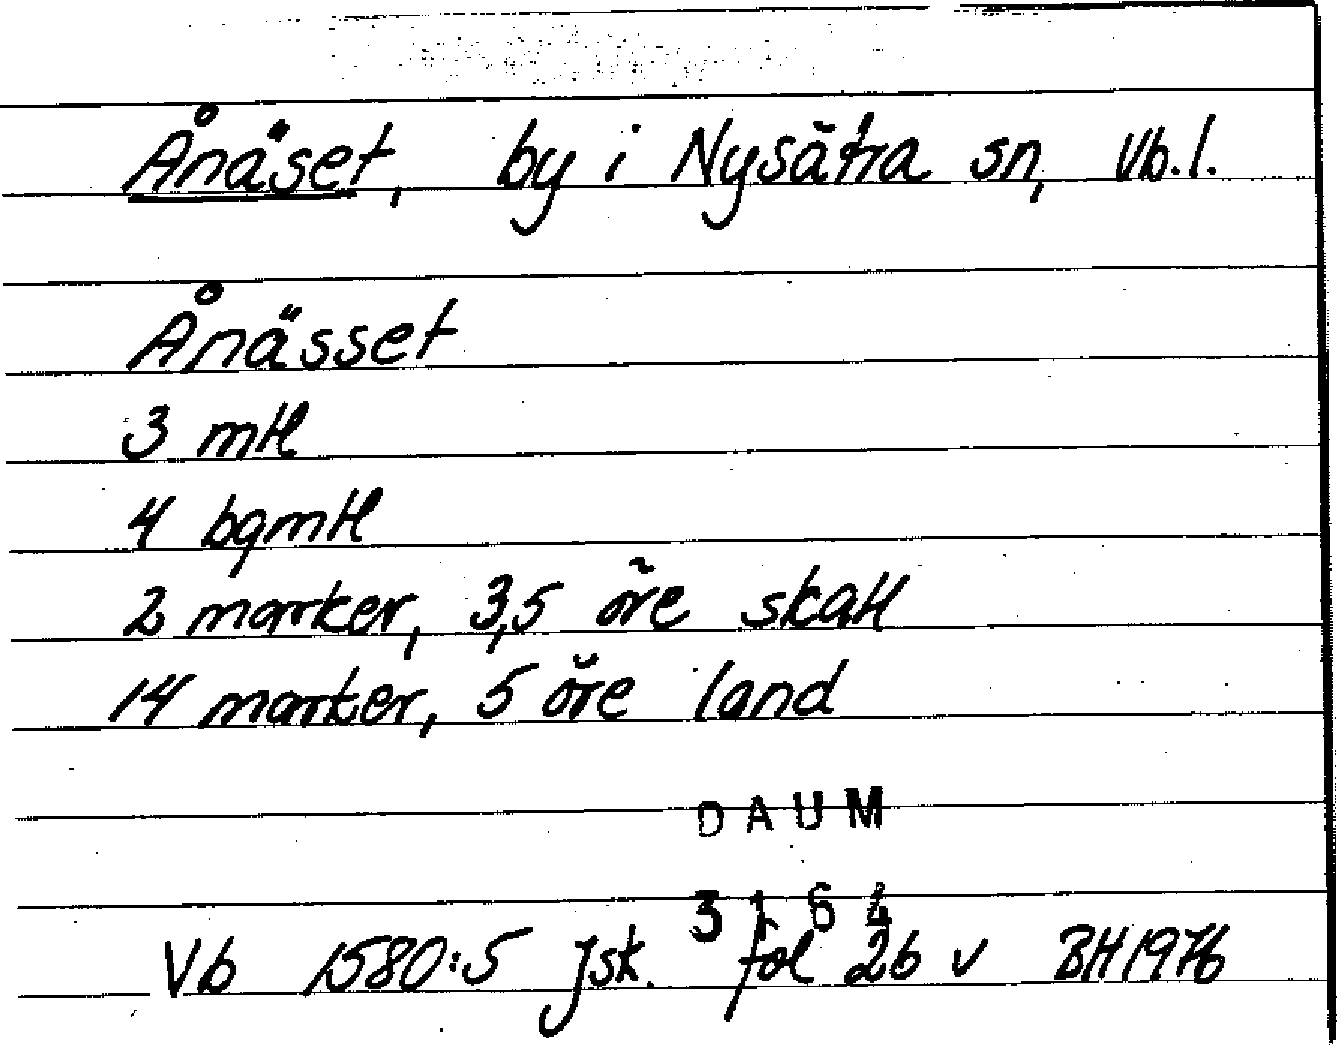 Ånäset, by i Nysätra sn, Vb.l.
Ånässet
3 mtl
4 bgmtl
2 marker, 3,5 öre skatt
14 marker, 5 öre land
DAUM
3164
Vb 1580:5 Jsk. fol 26 v BH 1976